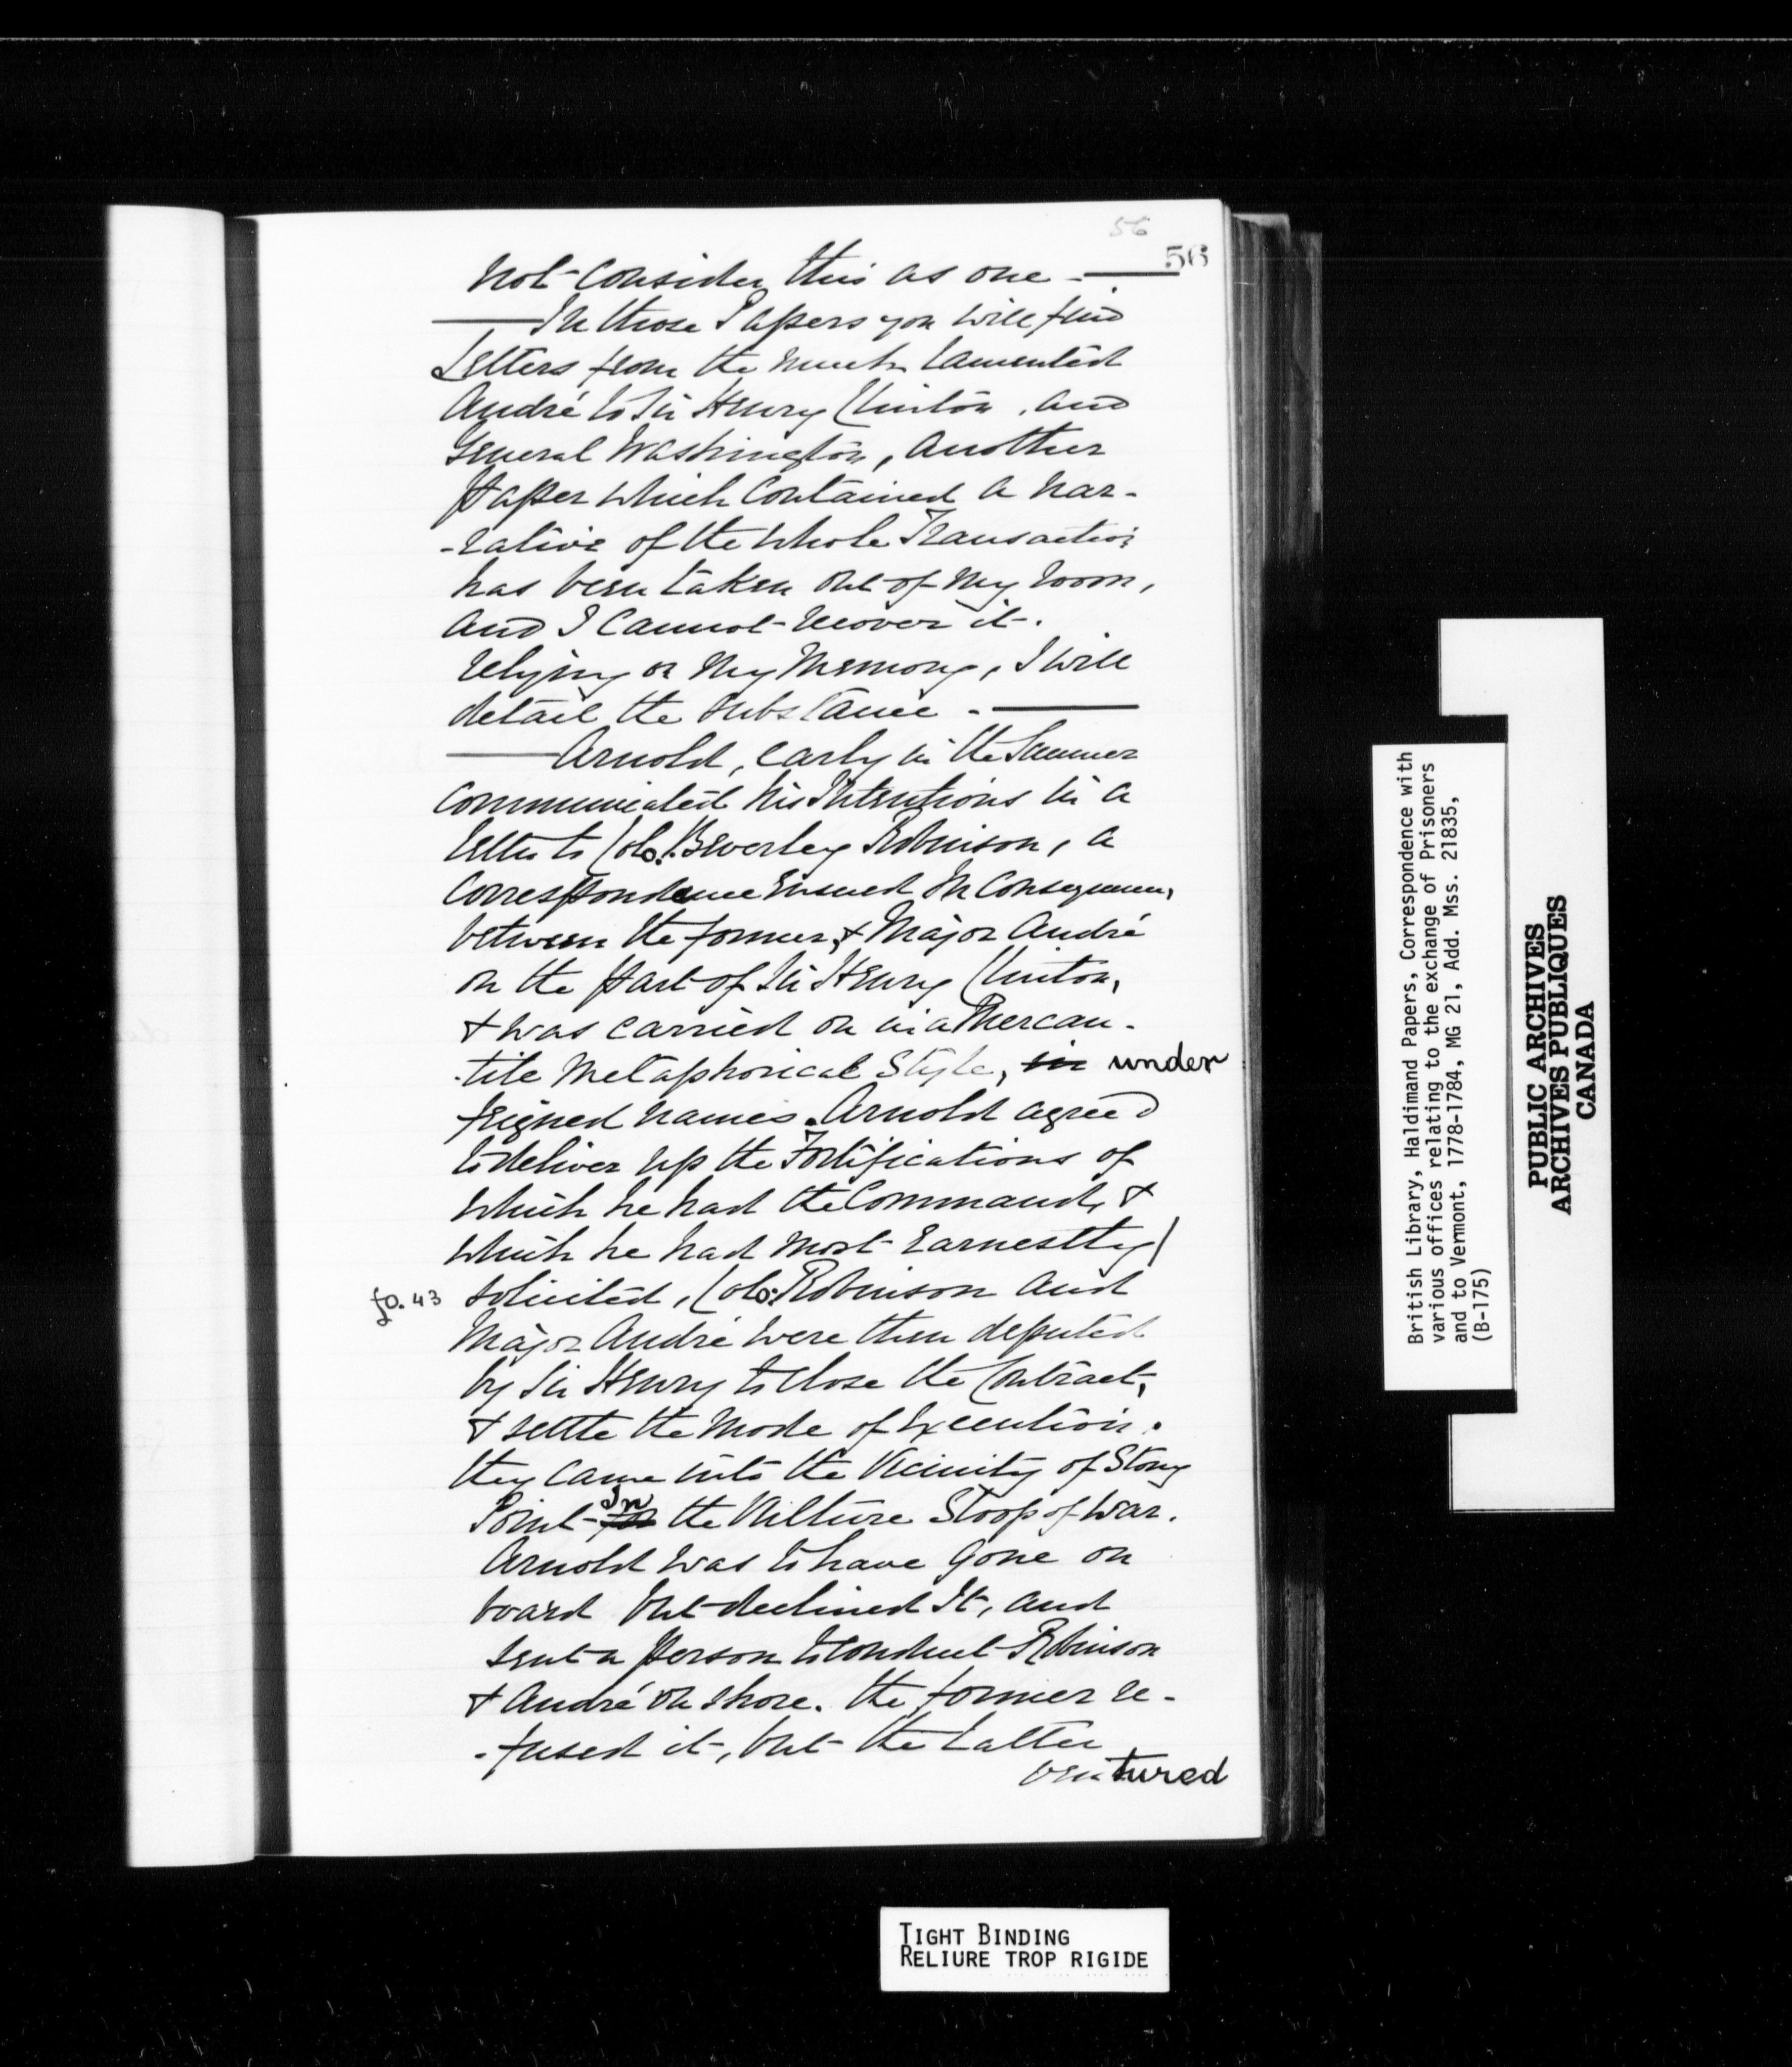 56
56
not consider this as one -
In those Papers you will find
Letters from the much lamented
André to Sir Henry Clinton, and
General Washington, another
Paper which contained a nar-
-rative of the whole Transaction
has been taken out of my room,
and I cannot recover it.
relying on my memory, I will
detail the substance -
Arnold, early in the Summer
communicated his Intentions in a
letter to Colo. Beverley Robinson, a
correspondence ensued in consequence,
between the former, & Major André
on the part of Sir Henry Clinton,
& was carried on in a Mercan-
-tile Metaphorical Style, in under
feigned names. Arnold agreed
to deliver up the Fortifications of
which he had the Command, &
which he had most Earnestly
fo. 43 solicited, Colo. Robinson and
Major André were then deputed
by Sir Henry to close the Contract,
& settle the mode of Execution.
they came into the Vicinity of Stony
Point In the Vulture Sloop of war.
Arnold was to have gone on
board but declined It, and
sent a person to conduct Robinson
& André on shore. the former re-
-fused it, but the latter
ventured
British Library, Haldimand Papers, Correspondence with
various offices relating to the exchange of Prisoners
and to Vermont, 1778-1784, MG 21, Add. Mss. 21835,
(B-175)
PUBLIC ARCHIVES
ARCHIVES PUBLIQUES
CANADA
TIGHT BINDING
RELIURE TROP RIGIDE